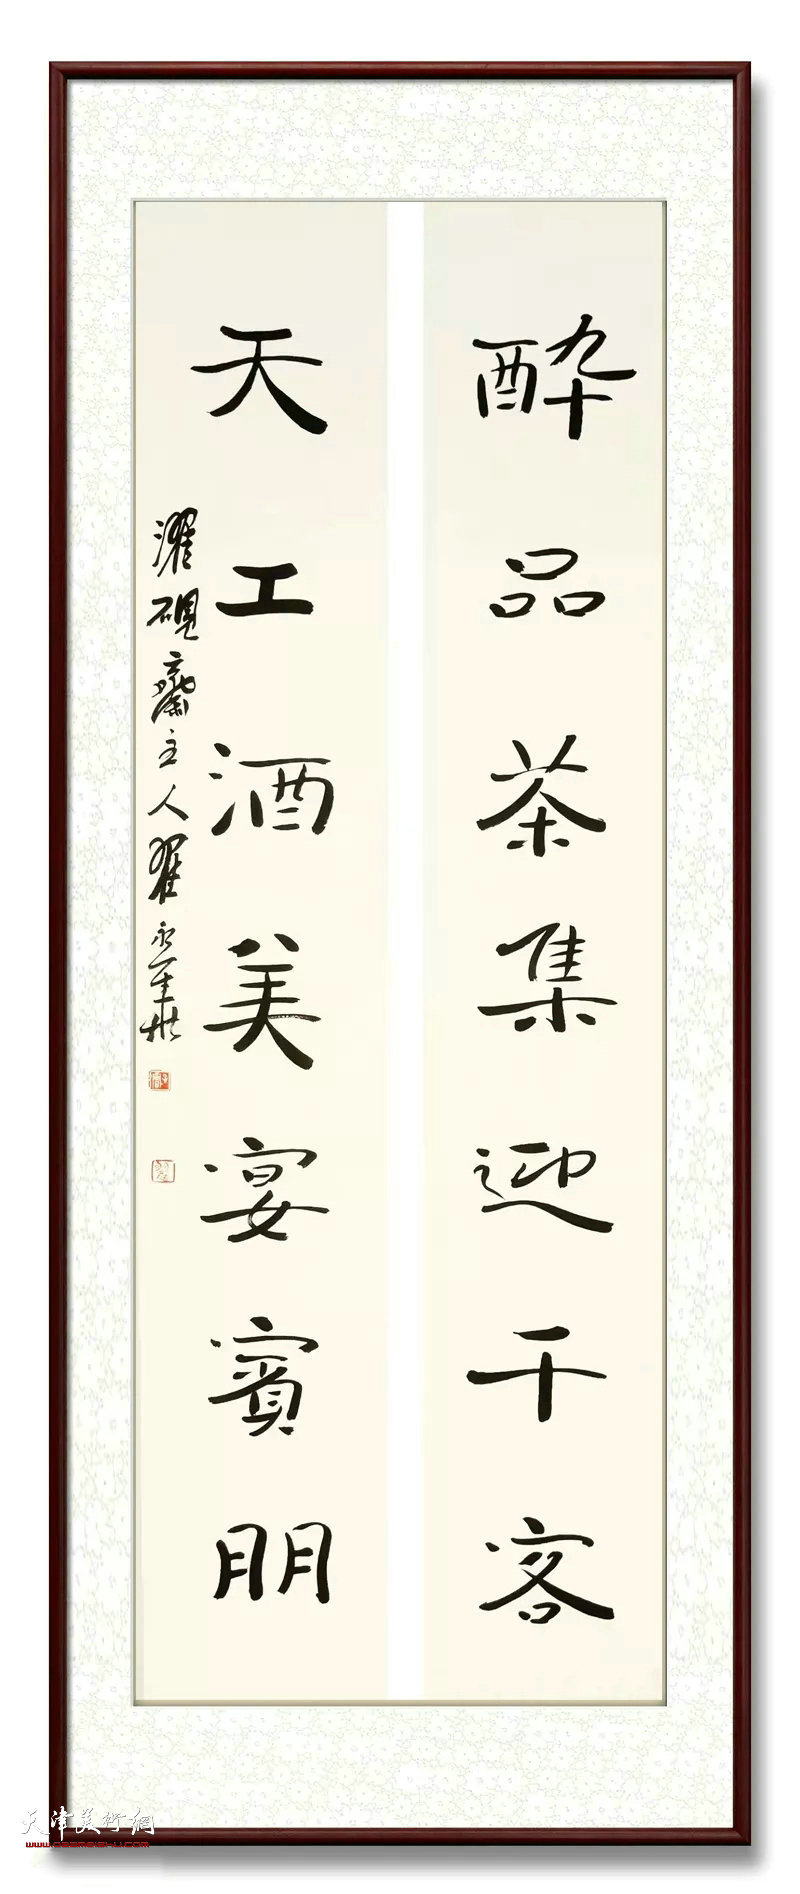 酔品茶集迎千客
天工酒美宴賓朋
濯硯齋主人翟永華
天津美術網
www.022meishu.com